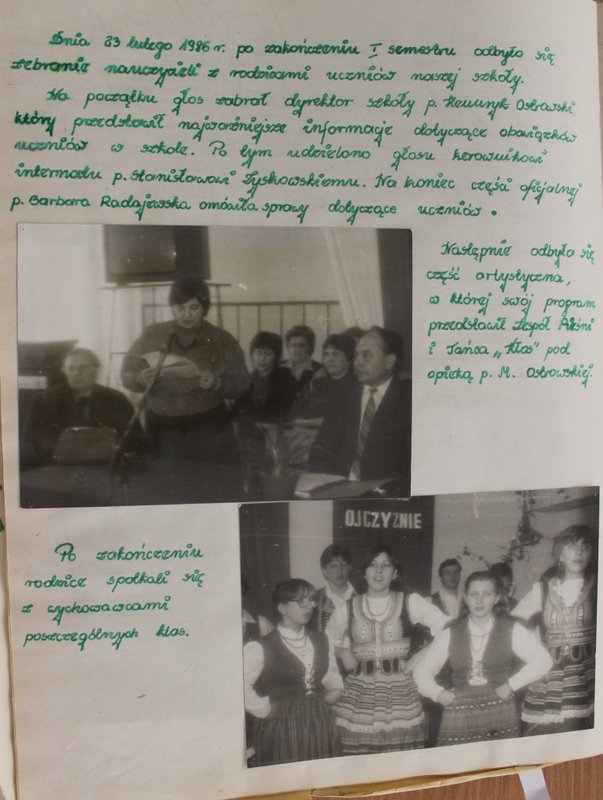 Dnia 23 lutego 1986 r. po zakończeniu I semestru odbyło się
zebranie nauczycieli z rodzicami uczniów naszej szkoły.
Na początku głos zabrał dyrektor szkoły p. Henryk Ostrowski
który przedstawił najważniejsze informacje dotyczące obowiązków
uczniów w szkole. Po tym udzielono głosu kierownikowi
internatu p. Stanisławowi Zyskowskiemu. Na koniec części oficjalnej
p. Barbara Radajewska omówiła sprawy dotyczące uczniów.
Następnie odbyła się
część artystyczna,
w której swój program
przedstawił Zespół Pieśni
i Tańca „Kłos" pod
opieką p. M. Ostrowskiej.
OJCZYZNIE
Po zakończeniu
rodzice spotkali się
z wychowawcami
poszczególnych klas.